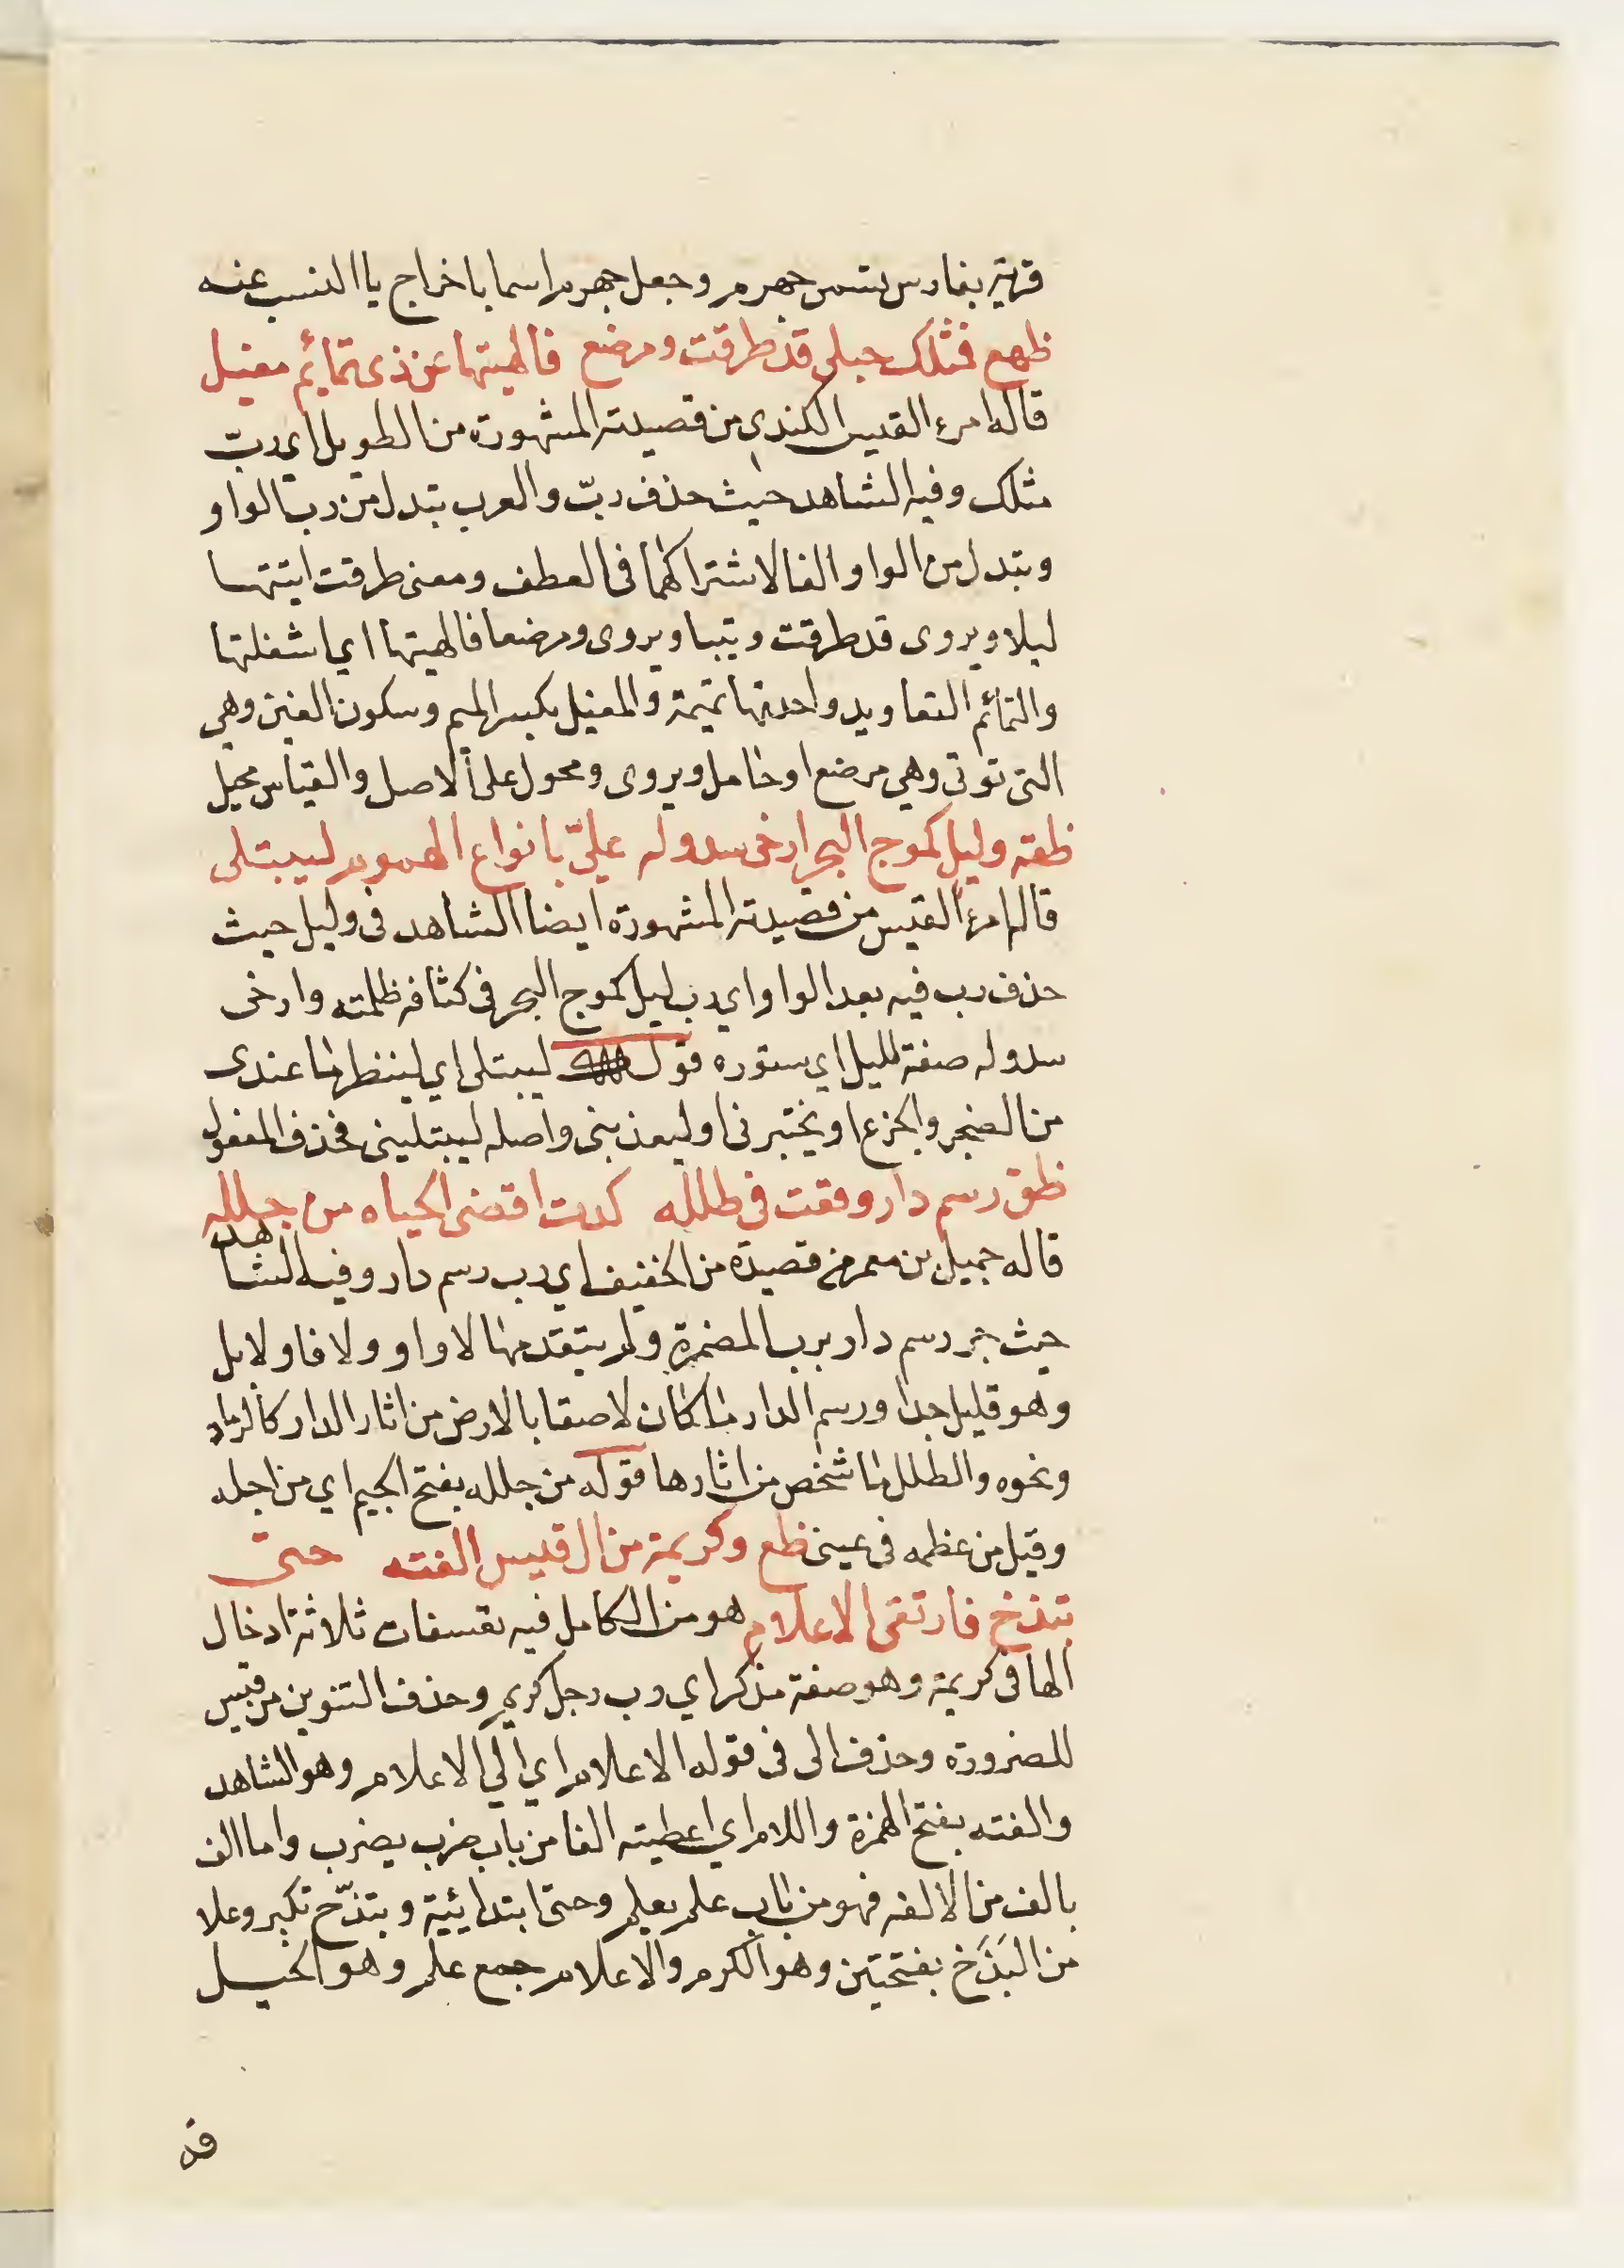 قرية بفارس تسمى جهرم وجعل جهرم اسما باخراج يا النسب عنه
ظهع فمثلك حبلى قد طرقت ومرضع فالهيتها عن ذى تمائم مغيل
قاله امرء القيس الكندي من قصيدته المشهورة من الطويل اي ربّ
مثلك وفيه الشاهد حيث حذف ربّ والعرب تبدل من رب الواو
وتبدل من الواو الفا لاشتراكهما فى العطف ومعنى طرقت اتيتها
ليلا ويروى قد طرقت وثيبا ويروى ومرضعا فالهيتها اي اشغلتها
والتمائم التعاويد واحدتها تميمة والمغيل بكسر الميم وسكون الغين وهي
التى توتى وهي مرضع او حامل ويروى ومحول على الاصل والقياس محيل
ظقه وليل كموج البحر ارخى سدوله عليّ بانواع الهموم ليبتلى
قاله امرء القيس من قصيدته المشهورة ايضا الشاهد فى وليل حيث
حذف رب فيه بعد الواو اي رب ليل كموج البحر فى كثافه ظلمته وارخى
سدوله صفة لليل اي ستوره قوله ليبتلى اي لينظر ما عندى
من الضجر والجزع او يختبرنى او ليعذبنى واصله ليبتلينى فحذف المفعول
ظق رسم دار وقفت فى طلله كدت اقضى الحياه من جلله
قاله جميل بن معمر من قصيدة من الخفيف اي رب رسم دار وفيه الشاهد
حيث جر رسم دار برب المضمرة ولم يتقدمها لا واو ولا فا ولا بل
وهو قليل جدا ورسم الدار ما كان لاصقا بالارض من اثار الدار كالرماد
ونحوه والطلل ما شخص من اثارها قوله من جلله بفتح الجيم اي من اجله
وقيل من عظمه فى عينى ظع وكريمة من ال قيس الفته حتى
تبذخ فارتقى الاعلام هو من الكامل فيه تعسفات ثلاثة ادخال
الها فى كريمة وهو صفة مذكر اي رب رجل كريم وحذف التنوين من قيس
للضرورة وحذف الى فى قوله الاعلام اي الي الاعلام وهو الشاهد
والفته بفتح الهمزة واللام اي اعطيته الفا من باب ضرب يضرب واما الف
بالف من الالفه فهو من باب علم يعلم وحتى ابتدائية وتبذّخ تكبر وعلا
من البَذَخ بفتحتين وهو الكرم والاعلام جمع علم وهو الجبل
قد